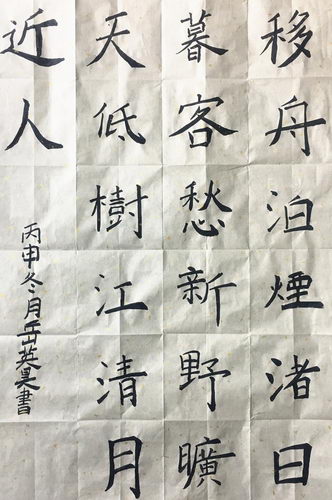 移舟泊煙渚日
暮客愁新野曠
天低樹江清月
近人
丙申冬月岳英昊書